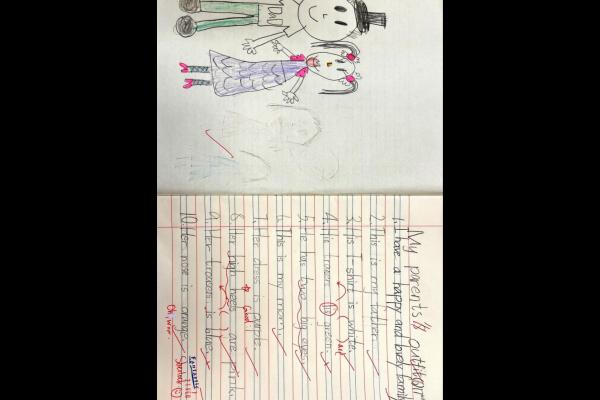 My parents outfit
1. I have a happy and lovely family
2. This is my father.
3. His T-shirt is white.
4. His trousers is green.
5. He has two big eyes.
6. This is my mom.
7. Her dress is purple.
Good!
8. Her high heels are pink.
9. Her trousers is blue.
10. Her nose is orange.